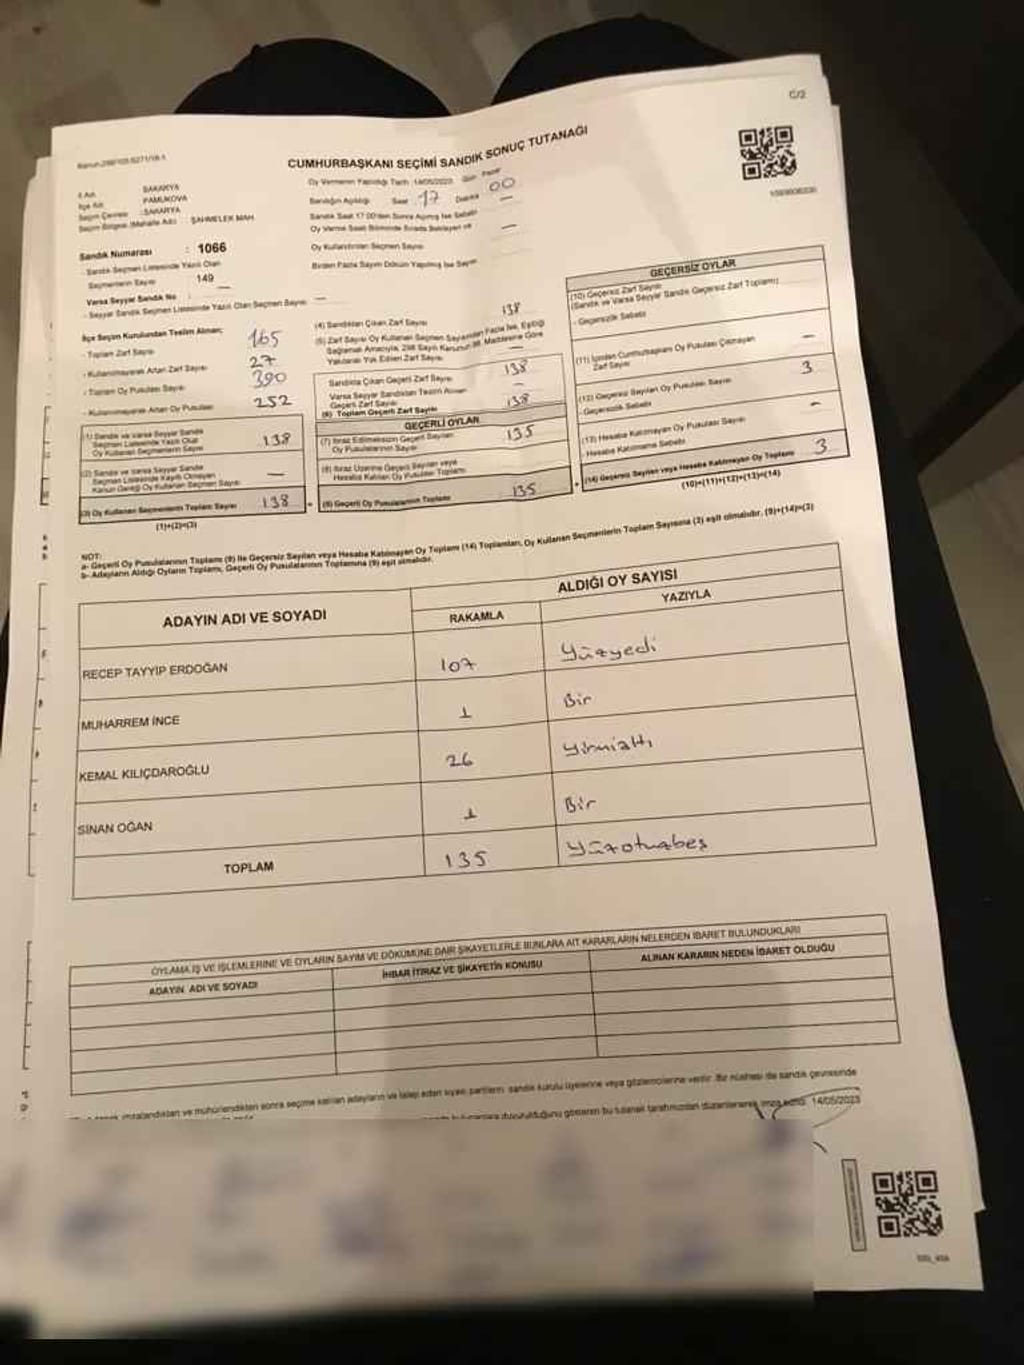 C/2
CUMHURBAŞKANI SEÇİMİ SANDIK SONUÇ TUTANAĞI
İl Adı : SAKARYA
İlçe Adı : PAMUKOVA
Seçim Çevresi : SAKARYA
Seçim Bölgesi (Mahalle Adı) : ŞAHMELEK MAH.
Oy Vermenin Yapıldığı Tarih: 14/05/2023 Gün: Pazar
Sandığın Açıldığı Saat 17 Dakika 00
Sandık Saat 17.00'den Sonra Açılmış İse Sebebi —
Oy Verme Saati Bitiminde Sırada Bekleyen ve
Oy Kullandırılan Seçmen Sayısı —
Birden Fazla Sayım Döküm Yapılmış İse Sayısı
Sandık Numarası : 1066
- Sandık Seçmen Listesinde Yazılı Olan
Seçmenlerin Sayısı : 149
Varsa Seyyar Sandık No : —
- Seyyar Sandık Seçmen Listesinde Yazılı Olan Seçmen Sayısı: —
İlçe Seçim Kurulundan Teslim Alınan;
- Toplam Zarf Sayısı 165
- Kullanılmayarak Artan Zarf Sayısı 27
- Toplam Oy Pusulası Sayısı 390
- Kullanılmayarak Artan Oy Pusulası 252
(1) Sandık ve Varsa Seyyar Sandık
Seçmen Listesinde Yazılı Olup
Oy Kullanan Seçmenlerin Sayısı 138
(2) Sandık ve Varsa Seyyar Sandık
Seçmen Listesinde Kayıtlı Olmayan
Kanun Gereği Oy Kullanan Seçmen Sayısı —
(3) Oy Kullanan Seçmenlerin Toplam Sayısı 138
(1)+(2)=(3)
(4) Sandıktan Çıkan Zarf Sayısı 138
(5) Zarf Sayısı Oy Kullanan Seçmen Sayısından Fazla İse, Eşitliği
Sağlamak Amacıyla, 298 Sayılı Kanunun 98. Maddesine Göre
Yakılarak Yok Edilen Zarf Sayısı —
Sandıkta Çıkan Geçerli Zarf Sayısı 138
Varsa Seyyar Sandıktan Teslim Alınan
Geçerli Zarf Sayısı —
(6) Toplam Geçerli Zarf Sayısı 138
GEÇERLİ OYLAR
(7) İtiraz Edilmeksizin Geçerli Sayılan
Oy Pusulalarının Sayısı 135
(8) İtiraz Üzerine Geçerli Sayılan veya
Hesaba Katılan Oy Pusulası Toplamı
(9) Geçerli Oy Pusulalarının Toplamı 135
GEÇERSİZ OYLAR
(10) Geçersiz Zarf Sayısı
(Sandık ve Varsa Seyyar Sandık Geçersiz Zarf Toplamı)
- Geçersizlik Sebebi
(11) İçinden Cumhurbaşkanı Oy Pusulası Çıkmayan
Zarf Sayısı —
(12) Geçersiz Sayılan Oy Pusulası Sayısı 3
- Geçersizlik Sebebi
(13) Hesaba Katılmayan Oy Pusulası Sayısı —
- Hesaba Katılmama Sebebi
(14) Geçersiz Sayılan veya Hesaba Katılmayan Oy Toplamı 3
(10)+(11)+(12)+(13)=(14)
NOT:
a- Geçerli Oy Pusulalarının Toplamı (9) ile Geçersiz Sayılan veya Hesaba Katılmayan Oy Toplamı (14) Toplamları, Oy Kullanan Seçmenlerin Toplam Sayısına (3) eşit olmalıdır. (9)+(14)=(3)
b- Adayların Aldığı Oyların Toplamı, Geçerli Oy Pusulalarının Toplamına (9) eşit olmalıdır.
ADAYIN ADI VE SOYADI
ALDIĞI OY SAYISI
RAKAMLA YAZIYLA
RECEP TAYYİP ERDOĞAN 107 Yüzyedi
MUHARREM İNCE 1 Bir
KEMAL KILIÇDAROĞLU 26 Yirmialtı
SİNAN OĞAN 1 Bir
TOPLAM 135 Yüzotuzbeş
OYLAMA İŞ VE İŞLEMLERİNE VE OYLARIN SAYIM VE DÖKÜMÜNE DAİR ŞİKAYETLERLE BUNLARA AİT KARARLARIN NELERDEN İBARET BULUNDUKLARI
ADAYIN ADI VE SOYADI İHBAR İTİRAZ VE ŞİKAYETİN KONUSU ALINAN KARARIN NEDEN İBARET OLDUĞU
imzalandıktan ve mühürlendikten sonra seçime katılan adayların ve talep eden siyasi partilerin sandık kurulu üyelerine veya gözlemcilerine verilir. Bir nüshası da sandık çevresinde
duyurulduğunu gösteren bu tutanak tarafımızdan düzenlenerek imza edildi. 14/05/2023